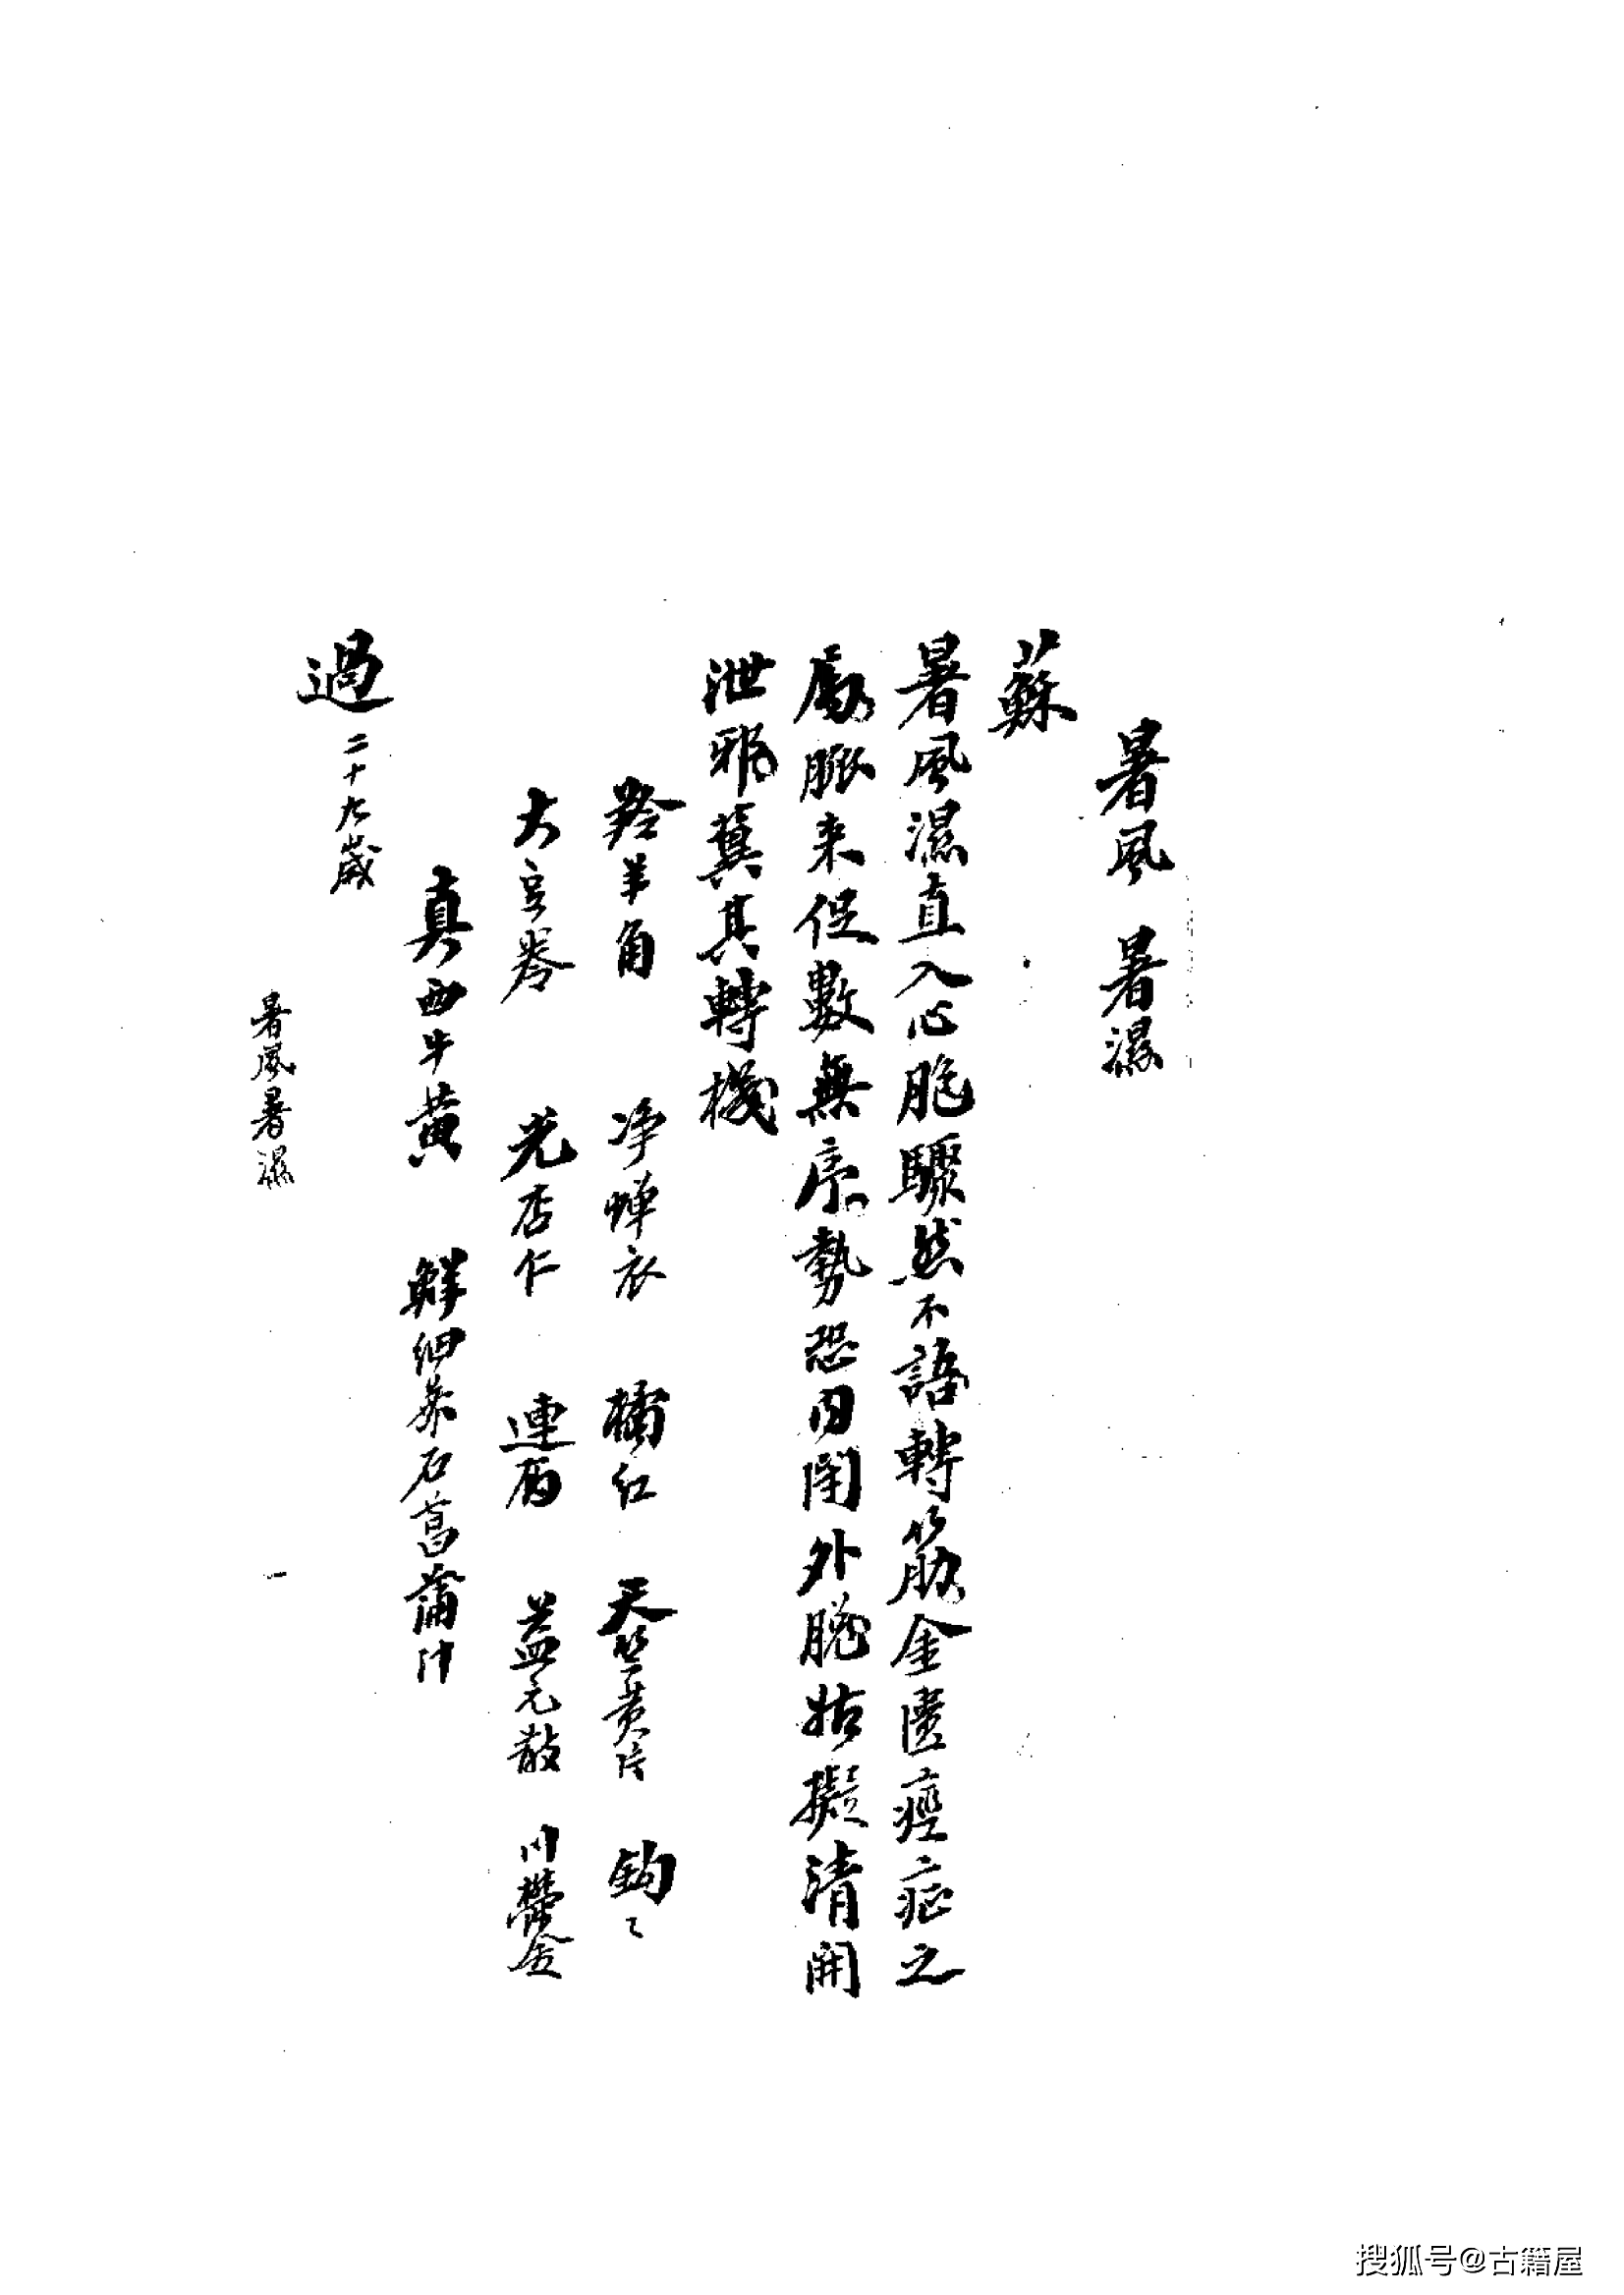 暑風 暑濕
蘇
暑風濕直入心胞驟然不語轉筋金匱痙症之
屬脈来促數無序勢恐内閉外脫姑擬清開
泄邪冀其轉機
羚羊角 净蟬衣 橘红 天竺黄片 鈎〻
大豆卷 光杏仁 連召 益元散 川鬱金
真西牛黄 鮮细葉石菖蒲汁
過二十九歲
暑風暑濕
一
搜狐号@古籍屋